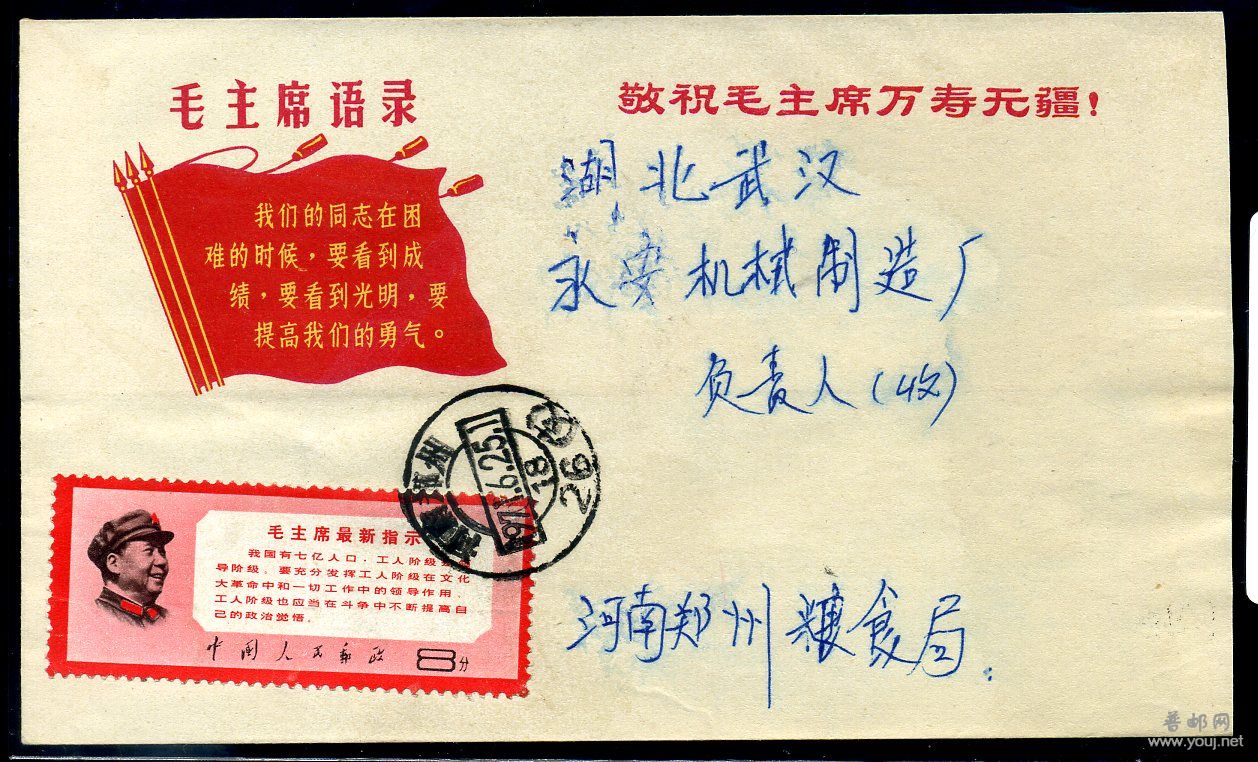 毛主席语录
敬祝毛主席万寿无疆！
我们的同志在困
难的时候，要看到成
绩，要看到光明，要
提高我们的勇气。
湖北武汉
永安机械制造厂
负责人（收）
河南郑州
6.25.1
18
26
毛主席最新指示
我国有七亿人口，工人阶级
导阶级。要充分发挥工人阶级在文化
大革命中和一切工作中的领导作用。
工人阶级也应当在斗争中不断提高自
己的政治觉悟。
中国人民邮政
8分
河南郑州粮食局
普邮网
www.youj.net